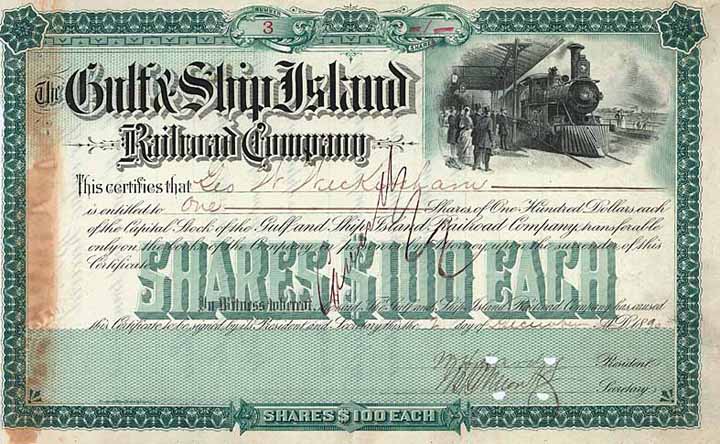 NUMBER
3
1
SHARES
The Gulf & Ship Island
Railroad Company
This certifies that Geo W
is entitled to One Shares of One Hundred Dollars each
of the Capital Stock of the Gulf and Ship Island Railroad Company, transferable
only on the books of the Company in person or by Attorney upon the surrender of this
Certificate
SHARES $100 EACH
In Witness whereof, the said The Gulf and Ship Island Railroad Company has caused
this Certificate to be signed by its President and Secretary this the day of December A.D. 189
President
Secretary
SHARES $100 EACH